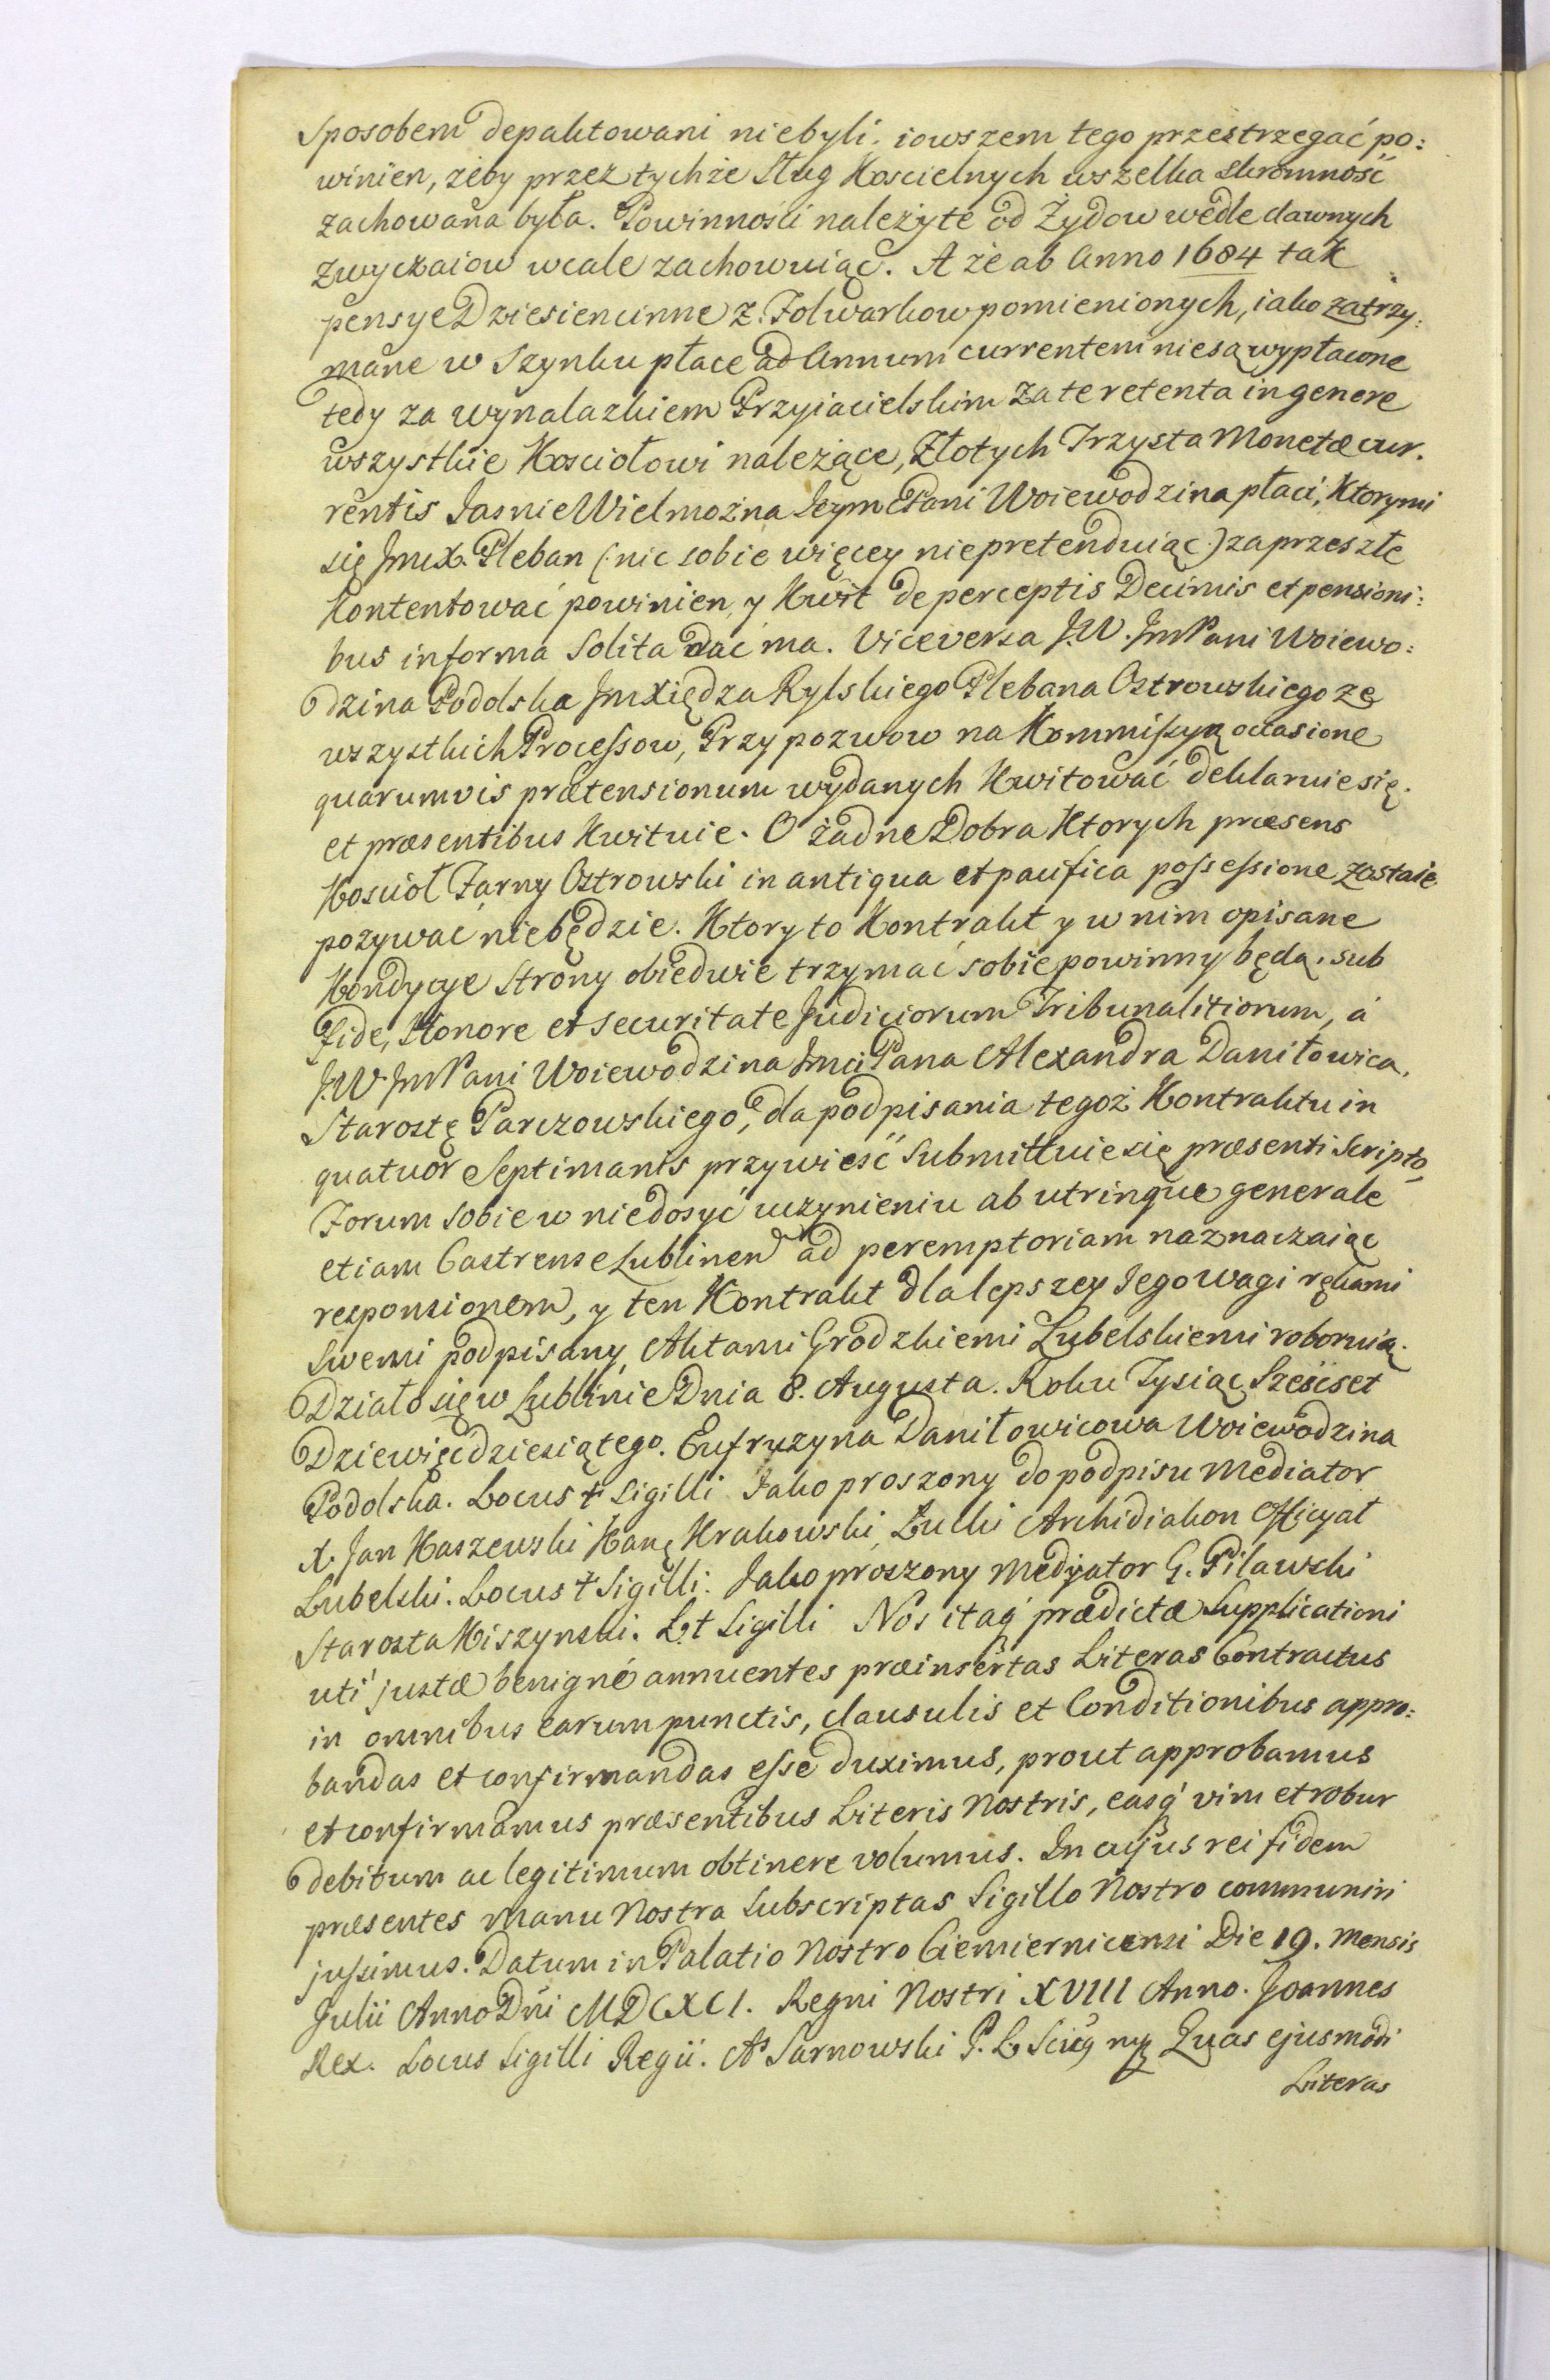 Sposobem depaktowani niebyli. iowszem tego przestrzegać po:
winien, żeby przez tychże Sług Koscielnych wszelka skromność
zachowana była. Powinności należyte od Żydow wedle dawnych
zwyczaiow wcale zachowuiąc. A że ab Anno 1684 tak
pensye Dziesiencinne z. Folwarkow pomienionych, iako zatrzy:
mane w Szynku płace ad Annum currentem niesą wypłacone
tedy za wynalazkiem Przyiacielskim za te retenta in genere
wszystkie Kosciołowi należące, Złotych Trzysta Monetæ cur.
rentis Jasnie Wielmożna Jeym Pani Woiewodzina płaci, Ktorymi
się Jmx. Pleban (: nic sobie więcey niepretenduiąc :) za przeszłe
Kontentować powinien, y Kwit de perceptis Decimis et pensioni:
bus in forma Solita dać ma. Viceversa J.W. Jm Pani Woiewo:
dzina Podolska Jmxiędza Rylskiego Plebana Ostrowskiego ze
wszystkich Processow, Przypozwow na Kommissyą occasione
quarumvis prætensionum wydanych Kwitować deklaruie się.
et præsentibus Kwituie. O żadne Dobra Ktorych præsens
Kosciół Farny Ostrowski in antiqua et pacifica possessione zostaie
pozywać niebędzie. Ktory to Kontrakt y w nim opisane
Kondycye Strony obiedwie trzymać sobie powinny będą. sub
Fide, Honore et securitate Judiciorum Tribunalitiorum, á
J.W. Jm Pani Woiewodzina Jmci Pana Alexandra Daniłowica.
Starostę Parczowskiego, dla podpisania tegoż Kontraktu in
quatuor Septimanis przywieść Submittuie się præsenti Scripto,
Forum sobie w niedosyć uczynieniu ab utrinque generale
etiam Castrense Lublinen ad peremptoriam naznaczaiąc
responsionem, y ten Kontrakt dla lepszey Jego wagi rękami
Swemi podpisany, Aktami Grodzkiemi Lubelskiemi roboruią.
Działo się w Lublinie Dnia 8. Augusta. Roku Tysiąc Sześćset
Dziewięćdziesiątego. Eufruzyna Daniłowicowa Woiewodzina
Podolska. Locus + Sigilli Jako proszony do podpisu Mediator
X. Jan Kaszewski Kanę Krakowski, Łucki Archidiakon Officyał
Lubelski. Locus + Sigilli. Jako proszony Medyator G. Pilawski
Starosta Kiszynski. L. + Sigilli Nos itaq prædictæ Supplicationi
uti justæ benigné annuentes præinsertas Literas Contractus
in omnibus earum punctis, clausulis et Conditionibus appro:
bandas et confirmandas esse duximus, prout approbamus
et confirmamus præsentibus Literis Nostris, easq vim et robur
debitum ac legitimum obtinere volumus. In cujus rei fidem
præsentes manu Nostra Subscriptas Sigillo Nostro communiri
jussimus. Datum in Palatio Nostro Ciemiernicensi Die 19. mensis
Julii Anno Dni MDCXCI. Regni Nostri XVIII Anno. Joannes
Rex. Locus Sigilli Regii. As Sarnowski Quas ejusmodi
Literas